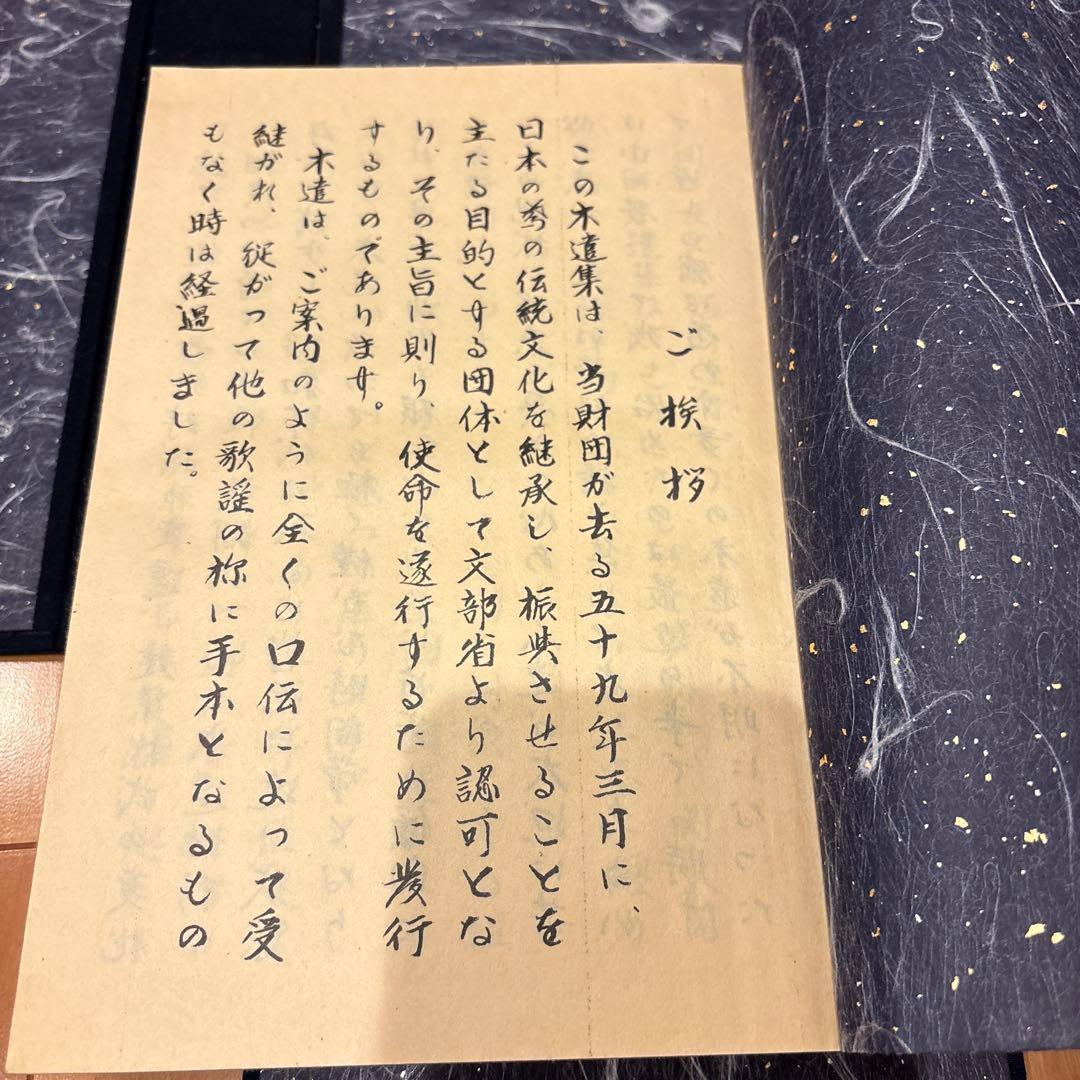 ご挨拶
この木遣集は、当財団が去る五十九年三月に、
日本の鳶の伝統文化を継承し、振興させることを
主たる目的とする団体として文部省より認可とな
り、その主旨に則り、使命を遂行するために発行
するものであります。
木遣は、ご案内のように全くの口伝によって受
継がれ、従がって他の歌謡の称に手本となるもの
もなく時は経過しました。